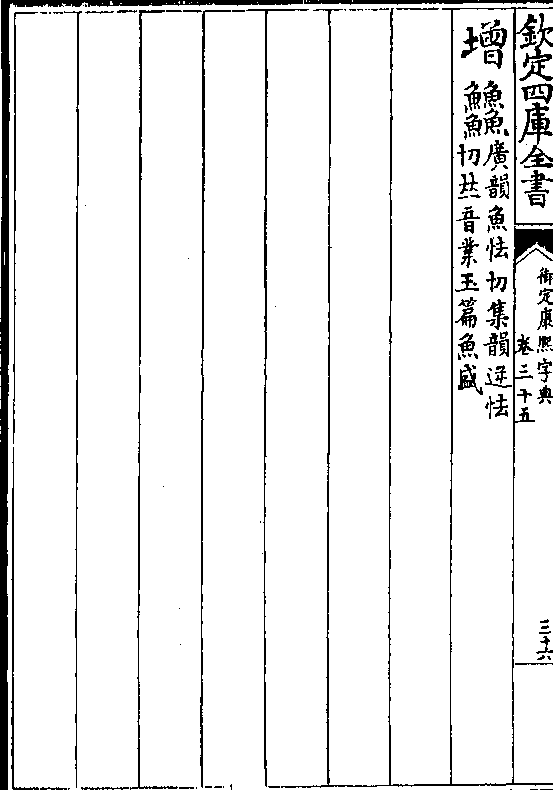 欽定四庫全書
御定康熙字典
卷三十五
三十六
增
䲜廣韻魚怯切集韻逆怯
切𠀤音業玉篇魚盛